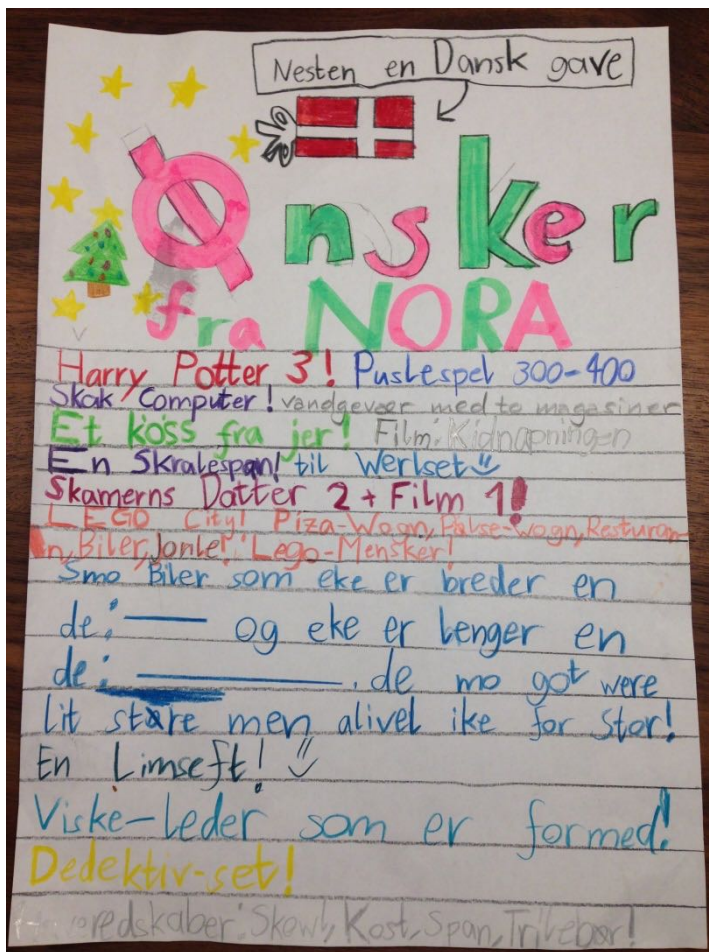 Nesten en Dansk gave
Ønsker
fra NORA
Harry Potter 3! Puslespel 300-400
Skak Computer! vandgevær med to magasiner
Et koss fra jer! Film: Kidnapningen
En Skralespan! til Werlset
Skamerns Datter 2 + Film 1!
LEGO City! Piza-Wogn, Pølse-Wogn, Resturan-
n, Biler, Jonle! Lego-Mensker!
Smo Biler som eke er breder en
de: — og eke er lenger en
de: —. de mo got were
lit støre men alivel ike for Stor!
En Limseft!
Viske-leder som er formed!
Dedektiv-set!
redskaber: Skowl, Kost, Span, Trilebør!